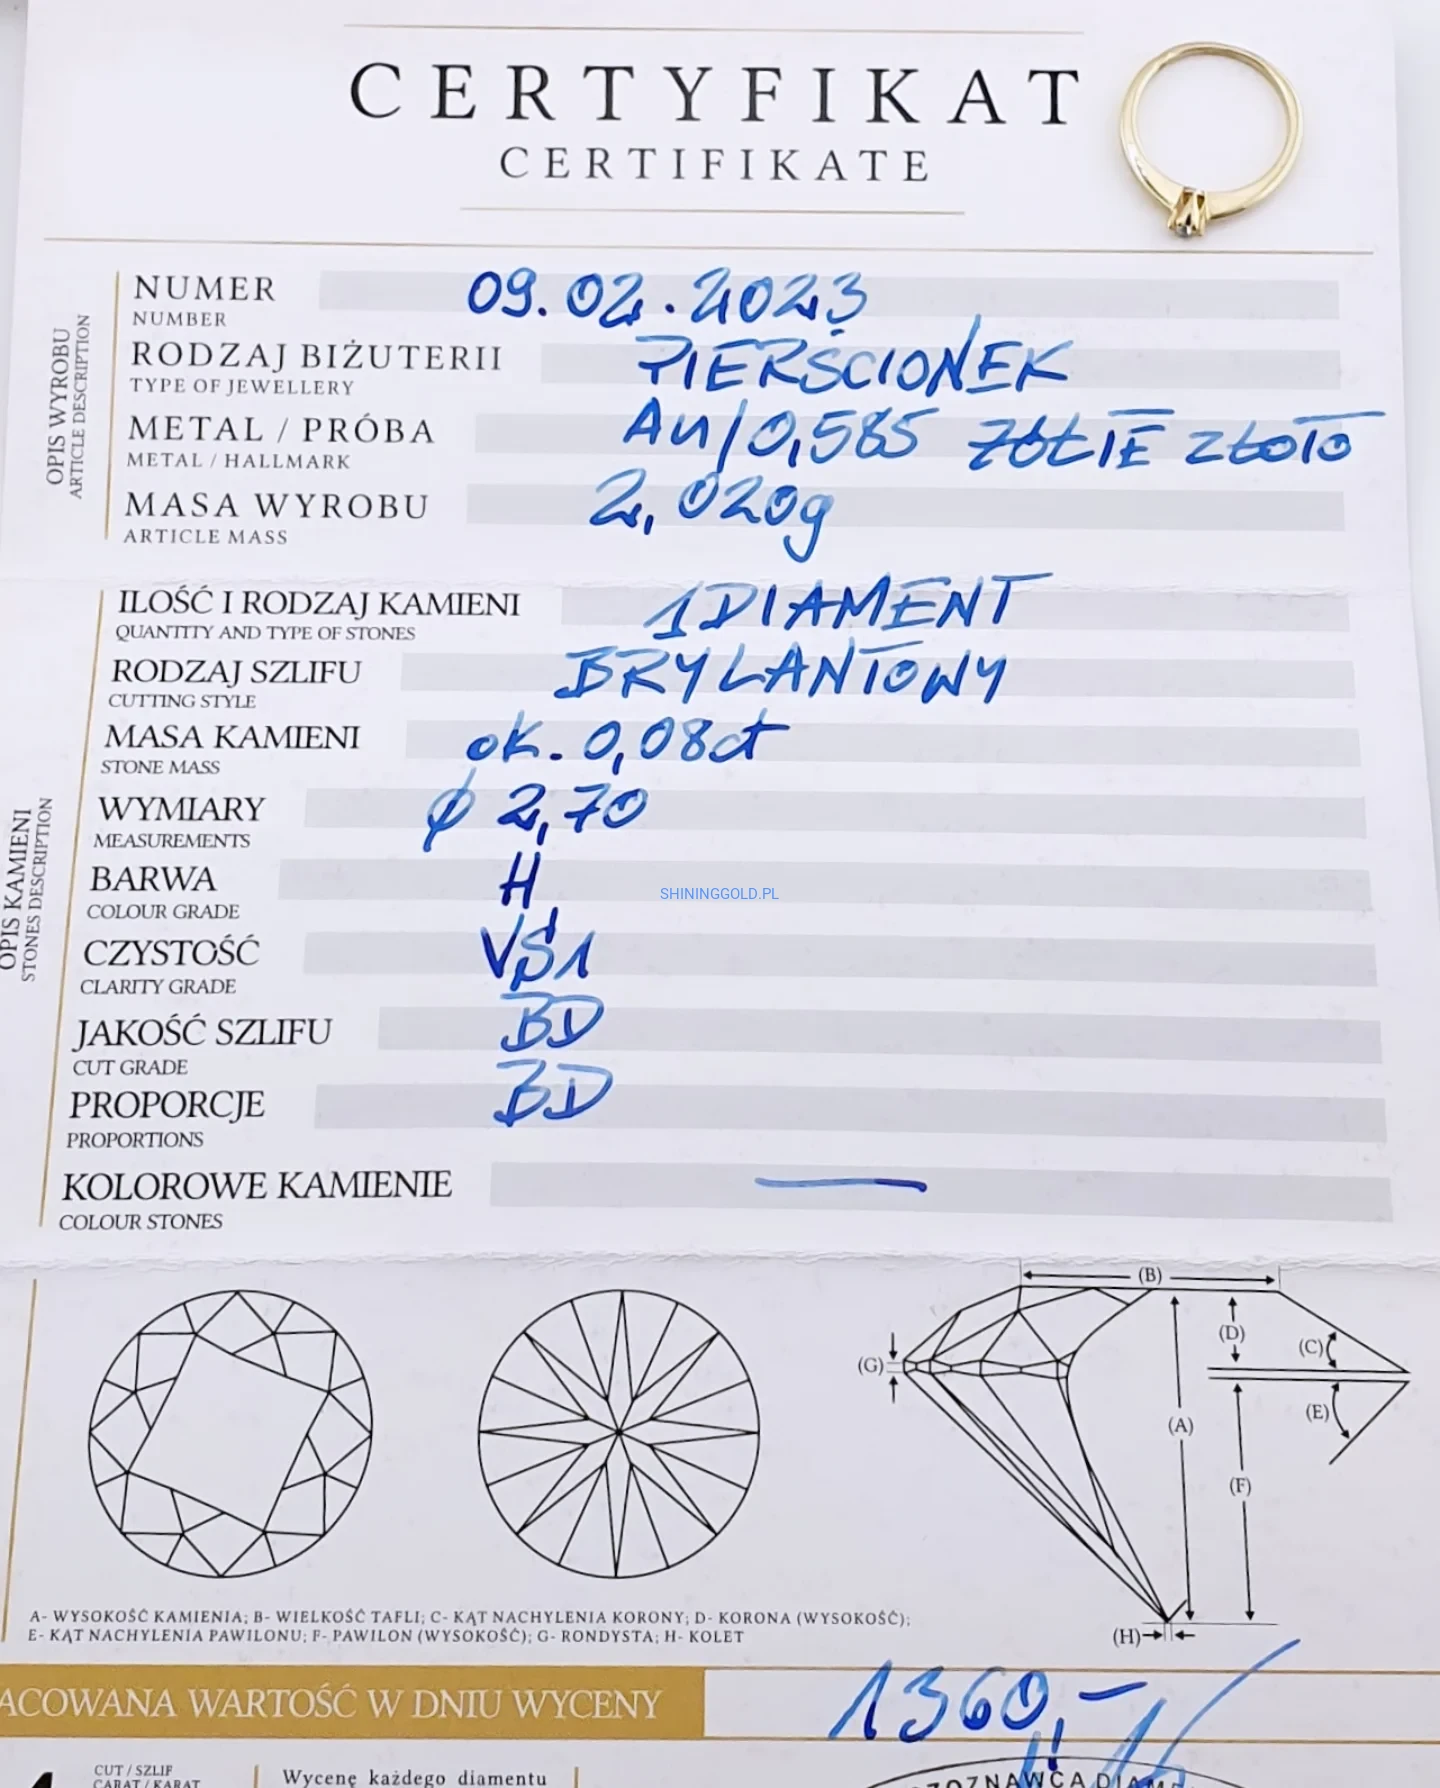 CERTYFIKAT
CERTIFIKATE
OPIS WYROBU
ARTICLE DESCRIPTION
NUMER 09.02.2023
NUMBER
RODZAJ BIŻUTERII PIERŚCIONEK
TYPE OF JEWELLERY
METAL / PRÓBA Au/0,585 ŻÓŁTE ZŁOTO
METAL / HALLMARK
MASA WYROBU 2,020g
ARTICLE MASS
OPIS KAMIENI
STONES DESCRIPTION
ILOŚĆ I RODZAJ KAMIENI 1 DIAMENT
QUANTITY AND TYPE OF STONES
RODZAJ SZLIFU BRYLANTOWY
CUTTING STYLE
MASA KAMIENI ok. 0,08ct
STONE MASS
WYMIARY ϕ 2,70
MEASUREMENTS
BARWA H
COLOUR GRADE
SHININGGOLD.PL
CZYSTOŚĆ VS1
CLARITY GRADE
JAKOŚĆ SZLIFU BD
CUT GRADE
PROPORCJE BD
PROPORTIONS
KOLOROWE KAMIENIE —
COLOUR STONES
(B)
(D)
(C)
(G)
(E)
(A)
(F)
(H)
A- WYSOKOŚĆ KAMIENIA; B- WIELKOŚĆ TAFLI; C- KĄT NACHYLENIA KORONY; D- KORONA (WYSOKOŚĆ);
E- KĄT NACHYLENIA PAWILONU; F- PAWILON (WYSOKOŚĆ); G- RONDYSTA; H- KOLET
ACOWANA WARTOŚĆ W DNIU WYCENY 1360,-
CUT / SZLIF
CARAT / KARAT
Wycenę każdego diamentu